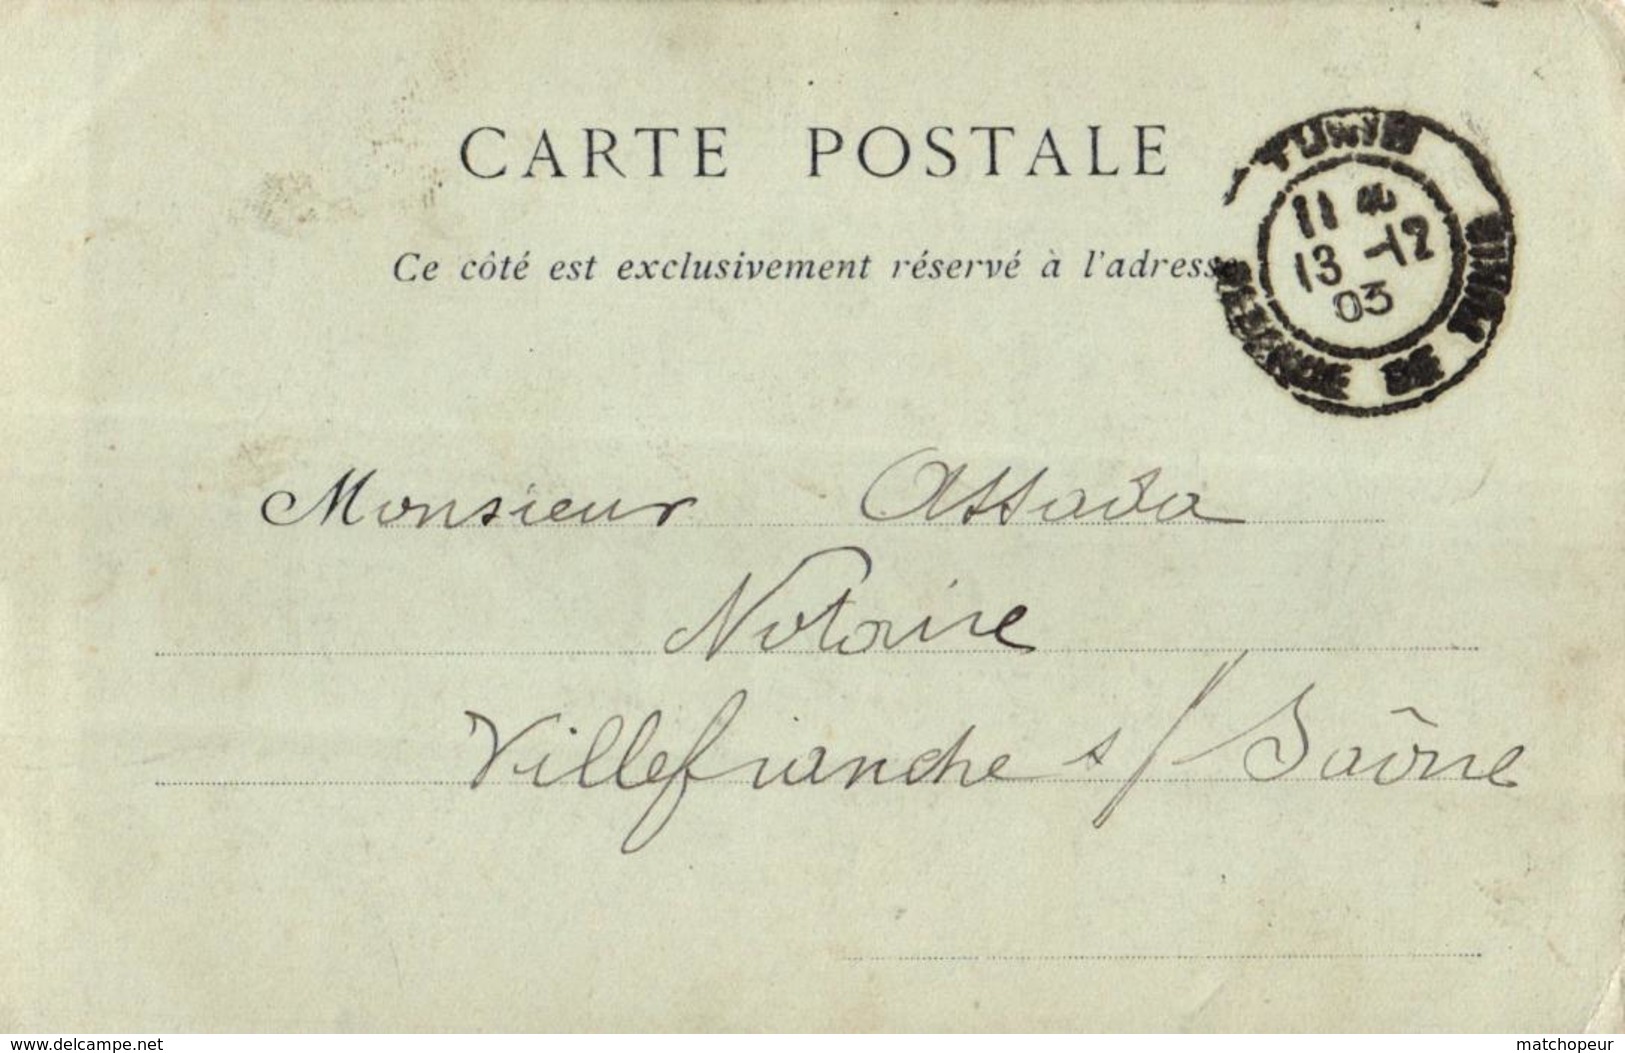 CARTE POSTALE
Ce côté est exclusivement réservé à l'adresse
TUNIS
11 M
13 -12
03
RÉGENCE DE TUNIS
Monsieur Assada
Notaire
Villefranche s/ Saône
www.delcampe.net
matchopeur